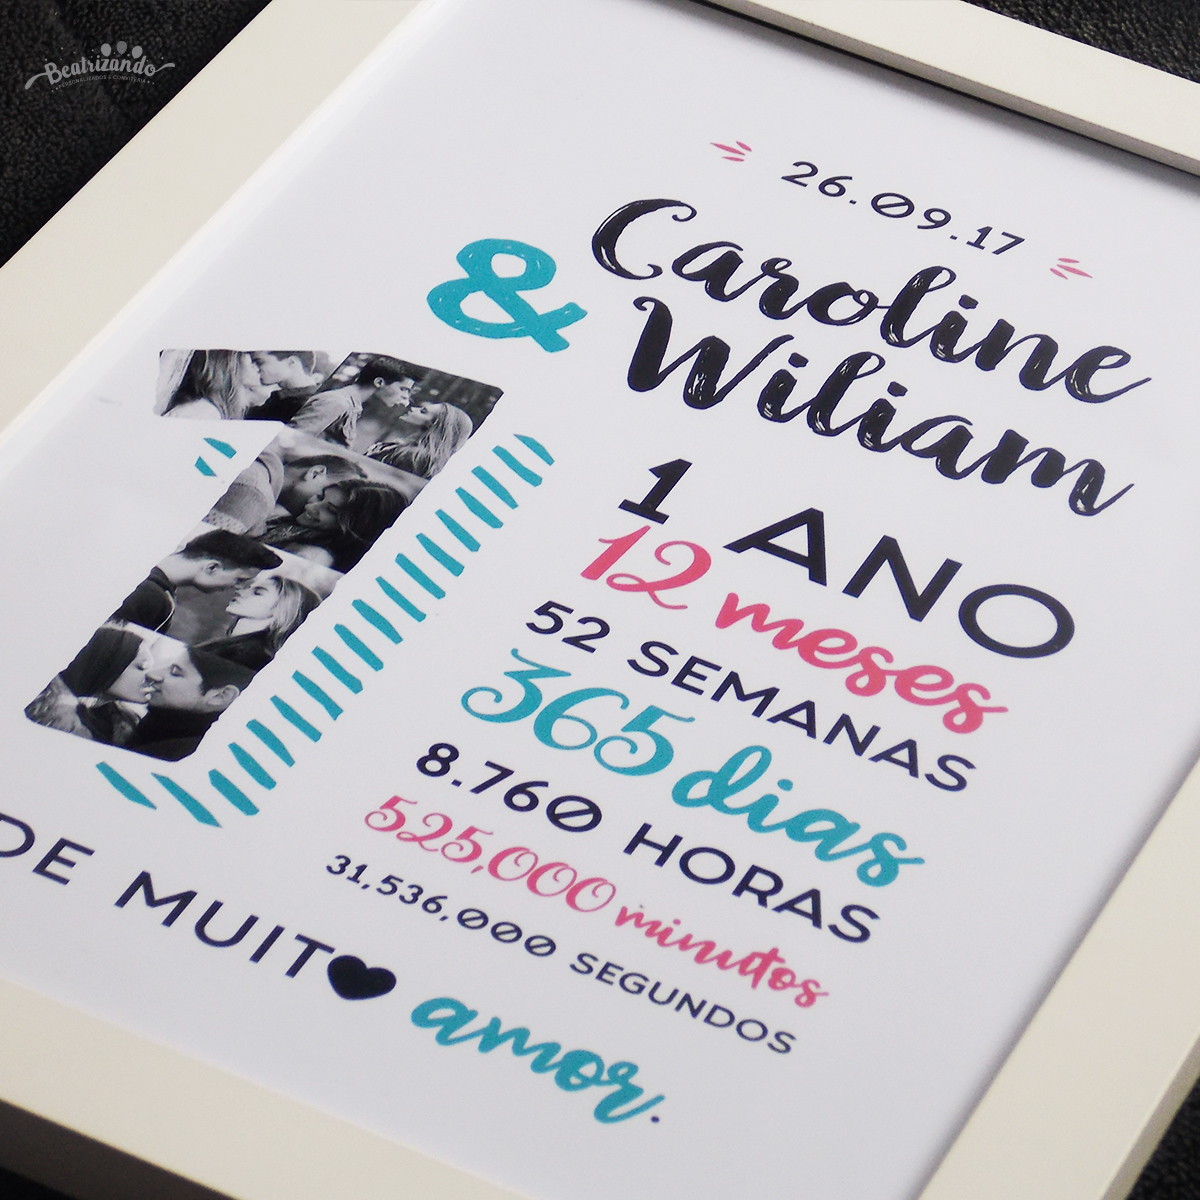 Beatrizando
PERSONALIZADOS E CONVITERIA
26.09.17
Caroline
& Wiliam
1 ANO
12 meses
52 SEMANAS
365 dias
8.760 HORAS
525,000 minutos
31,536,000 SEGUNDOS
DE MUIT♥ amor.